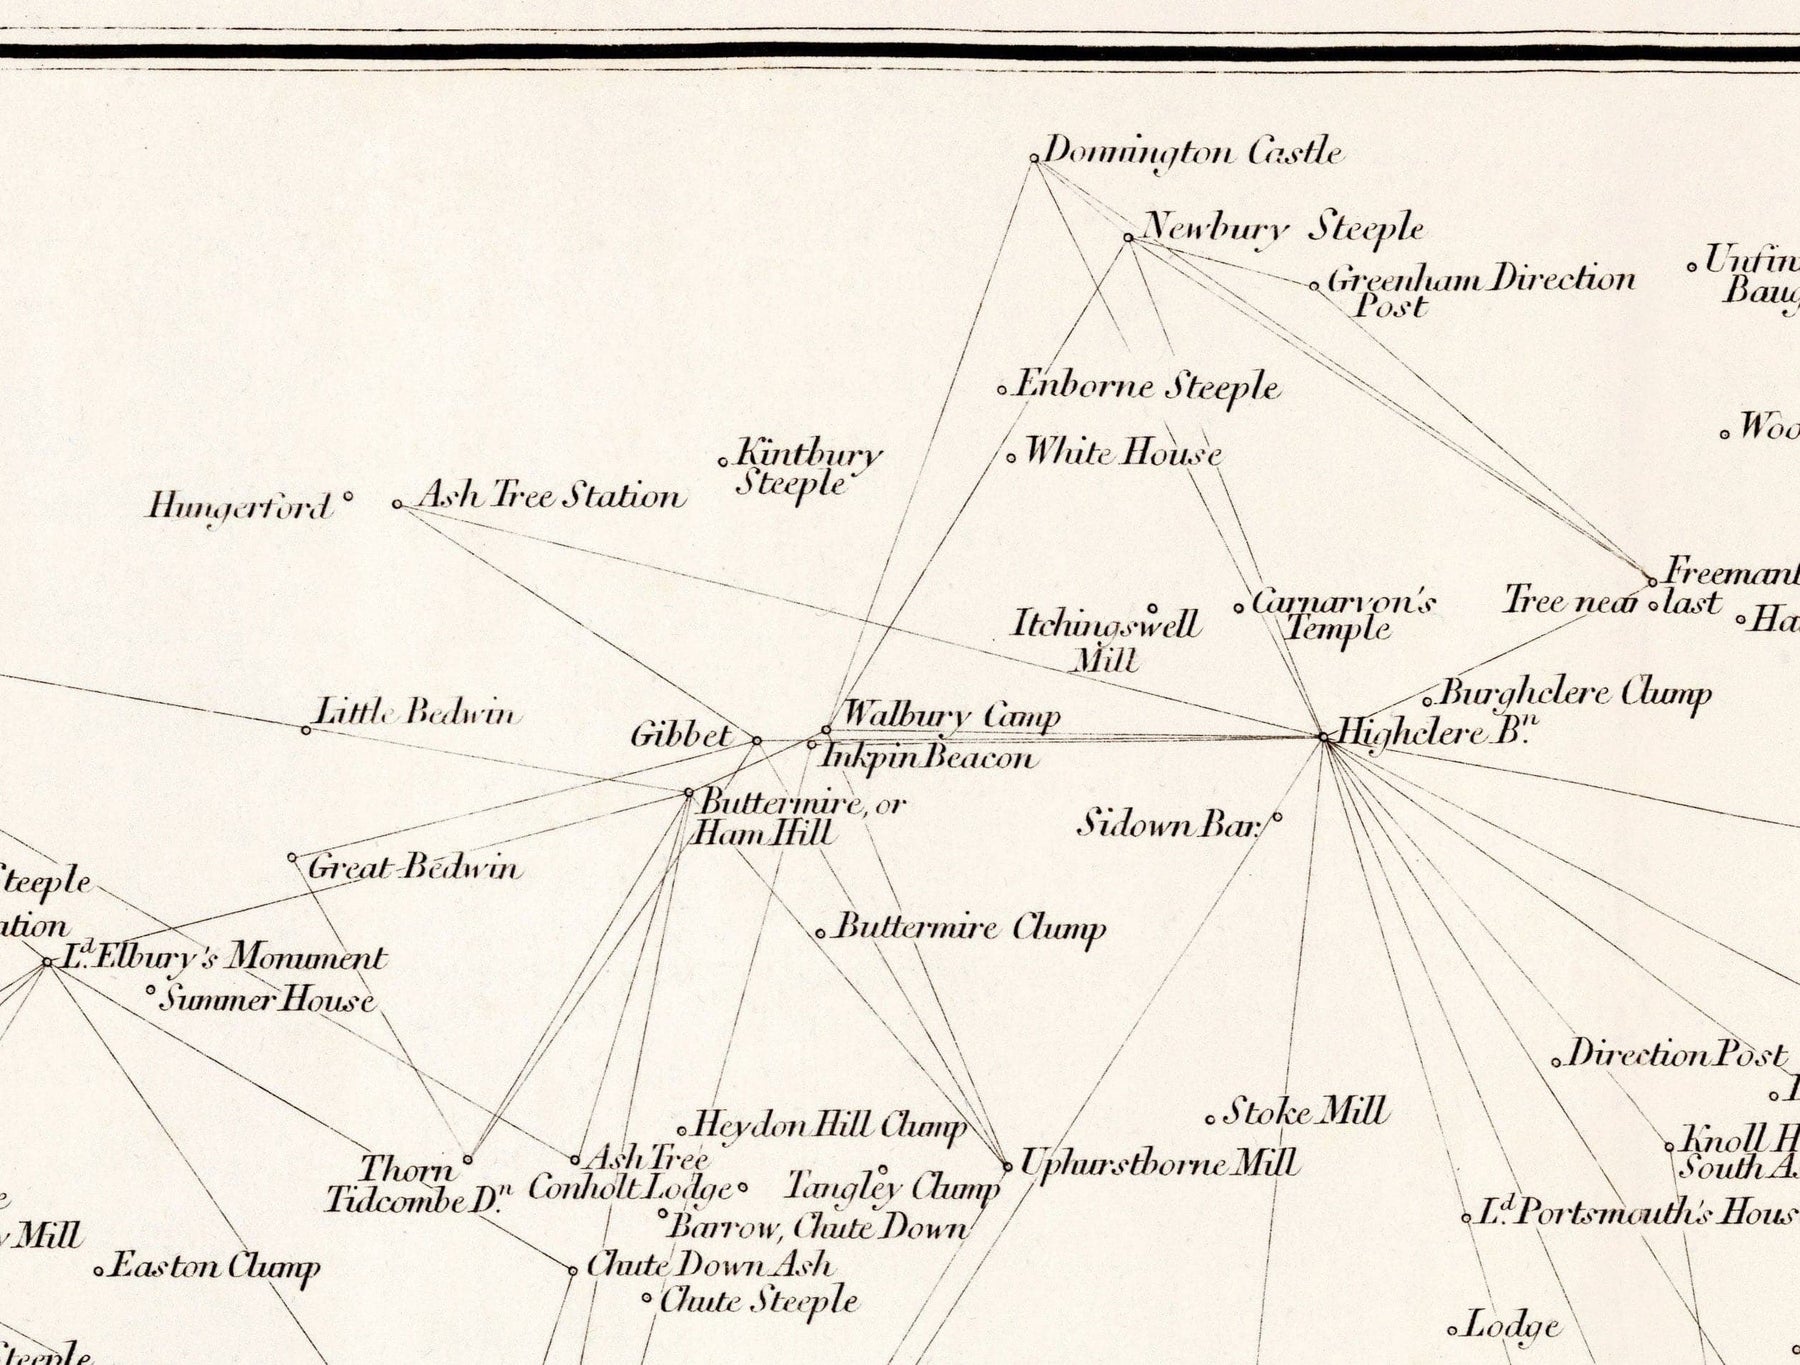 Donnington Castle
Newbury Steeple
Greenham Direction
Post
Enborne Steeple
White House
Kintbury
Steeple
Hungerford
Ash Tree Station
Carnarvon's
Temple
Itchingswell
Mill
Tree near last
Burghclere Clump
Highclere Bn.
Little Bedwin
Gibbet
Walbury Camp
Inkpin Beacon
Buttermire, or
Ham Hill
Sidown Bar.
Great Bedwin
Steeple
Ld. Elbury's Monument
Summer House
Buttermire Clump
Direction Post
Stoke Mill
Heydon Hill Clump
Ash Tree
Uphurstborne Mill
Thorn
Tidcombe Dn.
Conholt Lodge
Tangley Clump
Barrow, Chute Down
Ld. Portsmouth's Hous
Knoll H
South As
Mill
Easton Clump
Chute Down Ash
Chute Steeple
Lodge
Steeple